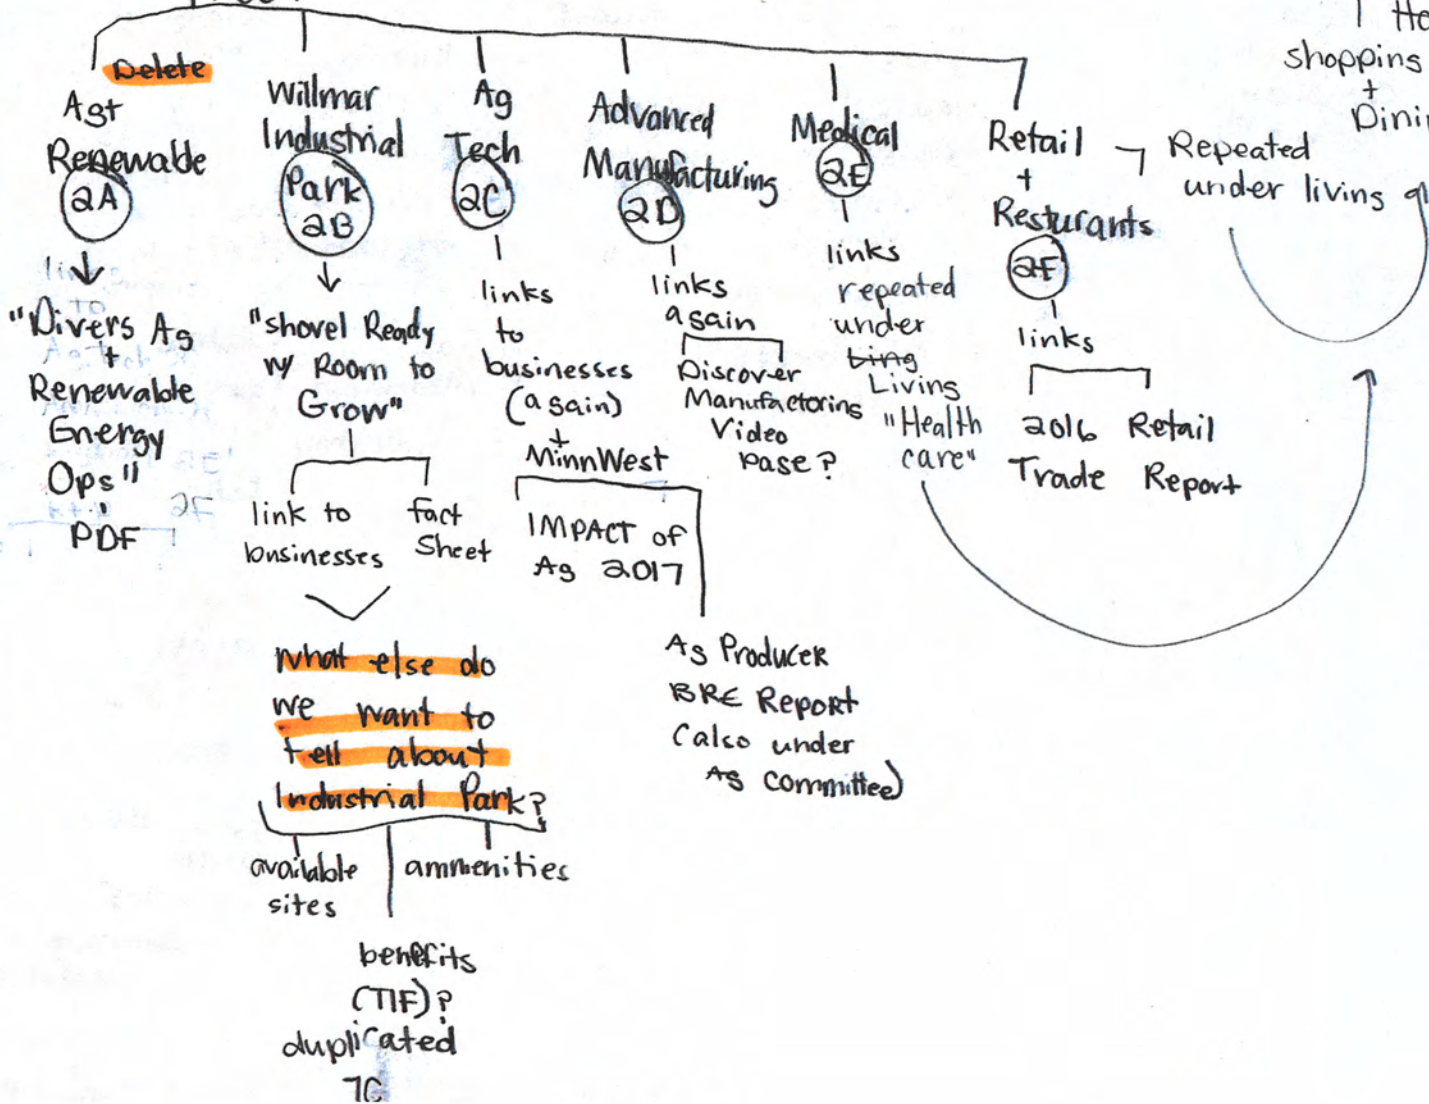 Delete
Ag +
Renewable
2A
"Divers Ag
+
Renewable
Energy
Ops"
PDF
Willmar
Industrial
Park
2B
"shovel Ready
w/ Room to
Grow"
link to
businesses
fact
Sheet
What else do
we want to
tell about
Industrial Park?
available
sites
benefits
(TIF)?
duplicated
7C
ammenities
Ag
Tech
2C
links
to
businesses
(again)
+
MinnWest
IMPACT of
Ag 2017
Ag Producer
BRE Report
(also under
Ag committee)
Advanced
Manufacturing
2D
links
again
Discover
Manufactoring
Video
page?
Medical
2E
links
repeated
under
Living
"Health
care"
Retail
+
Resturants
2F
links
2016
Trade
Retail
Report
Repeated
under living
shopping
+